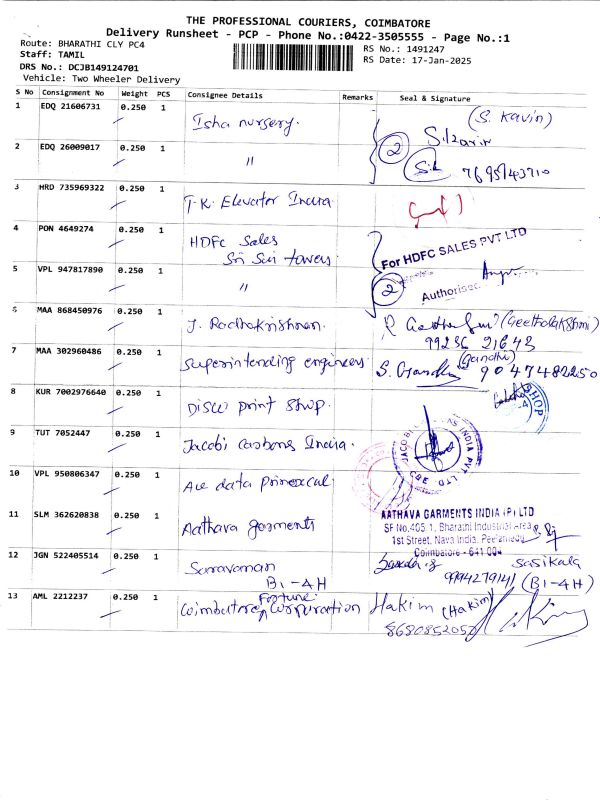 THE PROFESSIONAL COURIERS, COIMBATORE
Delivery Runsheet - PCP - Phone No.:0422-3505555 - Page No.:1
Route: BHARATHI CLY PC4
RS No.: 1491247
Staff: TAMIL
RS Date: 17-Jan-2025
DRS No.: DCJB149124701
Vehicle: Two Wheeler Delivery
S No Consignment No Weight PCS Consignee Details Remarks Seal & Signature
1 EDQ 21606731 0.250 1 Isha nursery. (S. Kavin)
2 EDQ 26009017 0.250 1 " 2
3 HRD 735969322 0.250 1 T.K. Elevator India
4 PON 4649274 0.250 1 HDFC Sales
Sri Sai towers
For HDFC SALES PVT LTD
5 VPL 947817890 0.250 1 " 2
Authorised
6 MAA 868450976 0.250 1 J. Radhakrishnan. (Geethalakshmi)
99236 21643
7 MAA 302960486 0.250 1 Superintending engineers S. Gandhi (Gandhi) 9047482250
8 KUR 7002976640 0.250 1 Disco print shop. SHOP
9 TUT 7052447 0.250 1 Jacobi carbons India. JACOBI CARBONS INDIA PVT. LTD. CBE
10 VPL 950806347 0.250 1 Ace data
11 SLM 362620838 0.250 1 Aathava garments AATHAVA GARMENTS INDIA (P) LTD
SF No.405.1, Bharathi Industrial Area
1st Street, Nava India, Peelamedu
Coimbatore - 641 004
12 JGN 522405514 0.250 1 Saravanan
B1-4H
Sasikala
9994279141 (B1-4H)
13 AML 2212237 0.250 1 Coimbatore Fortune Corporation Hakim (Hakim)
8680852057